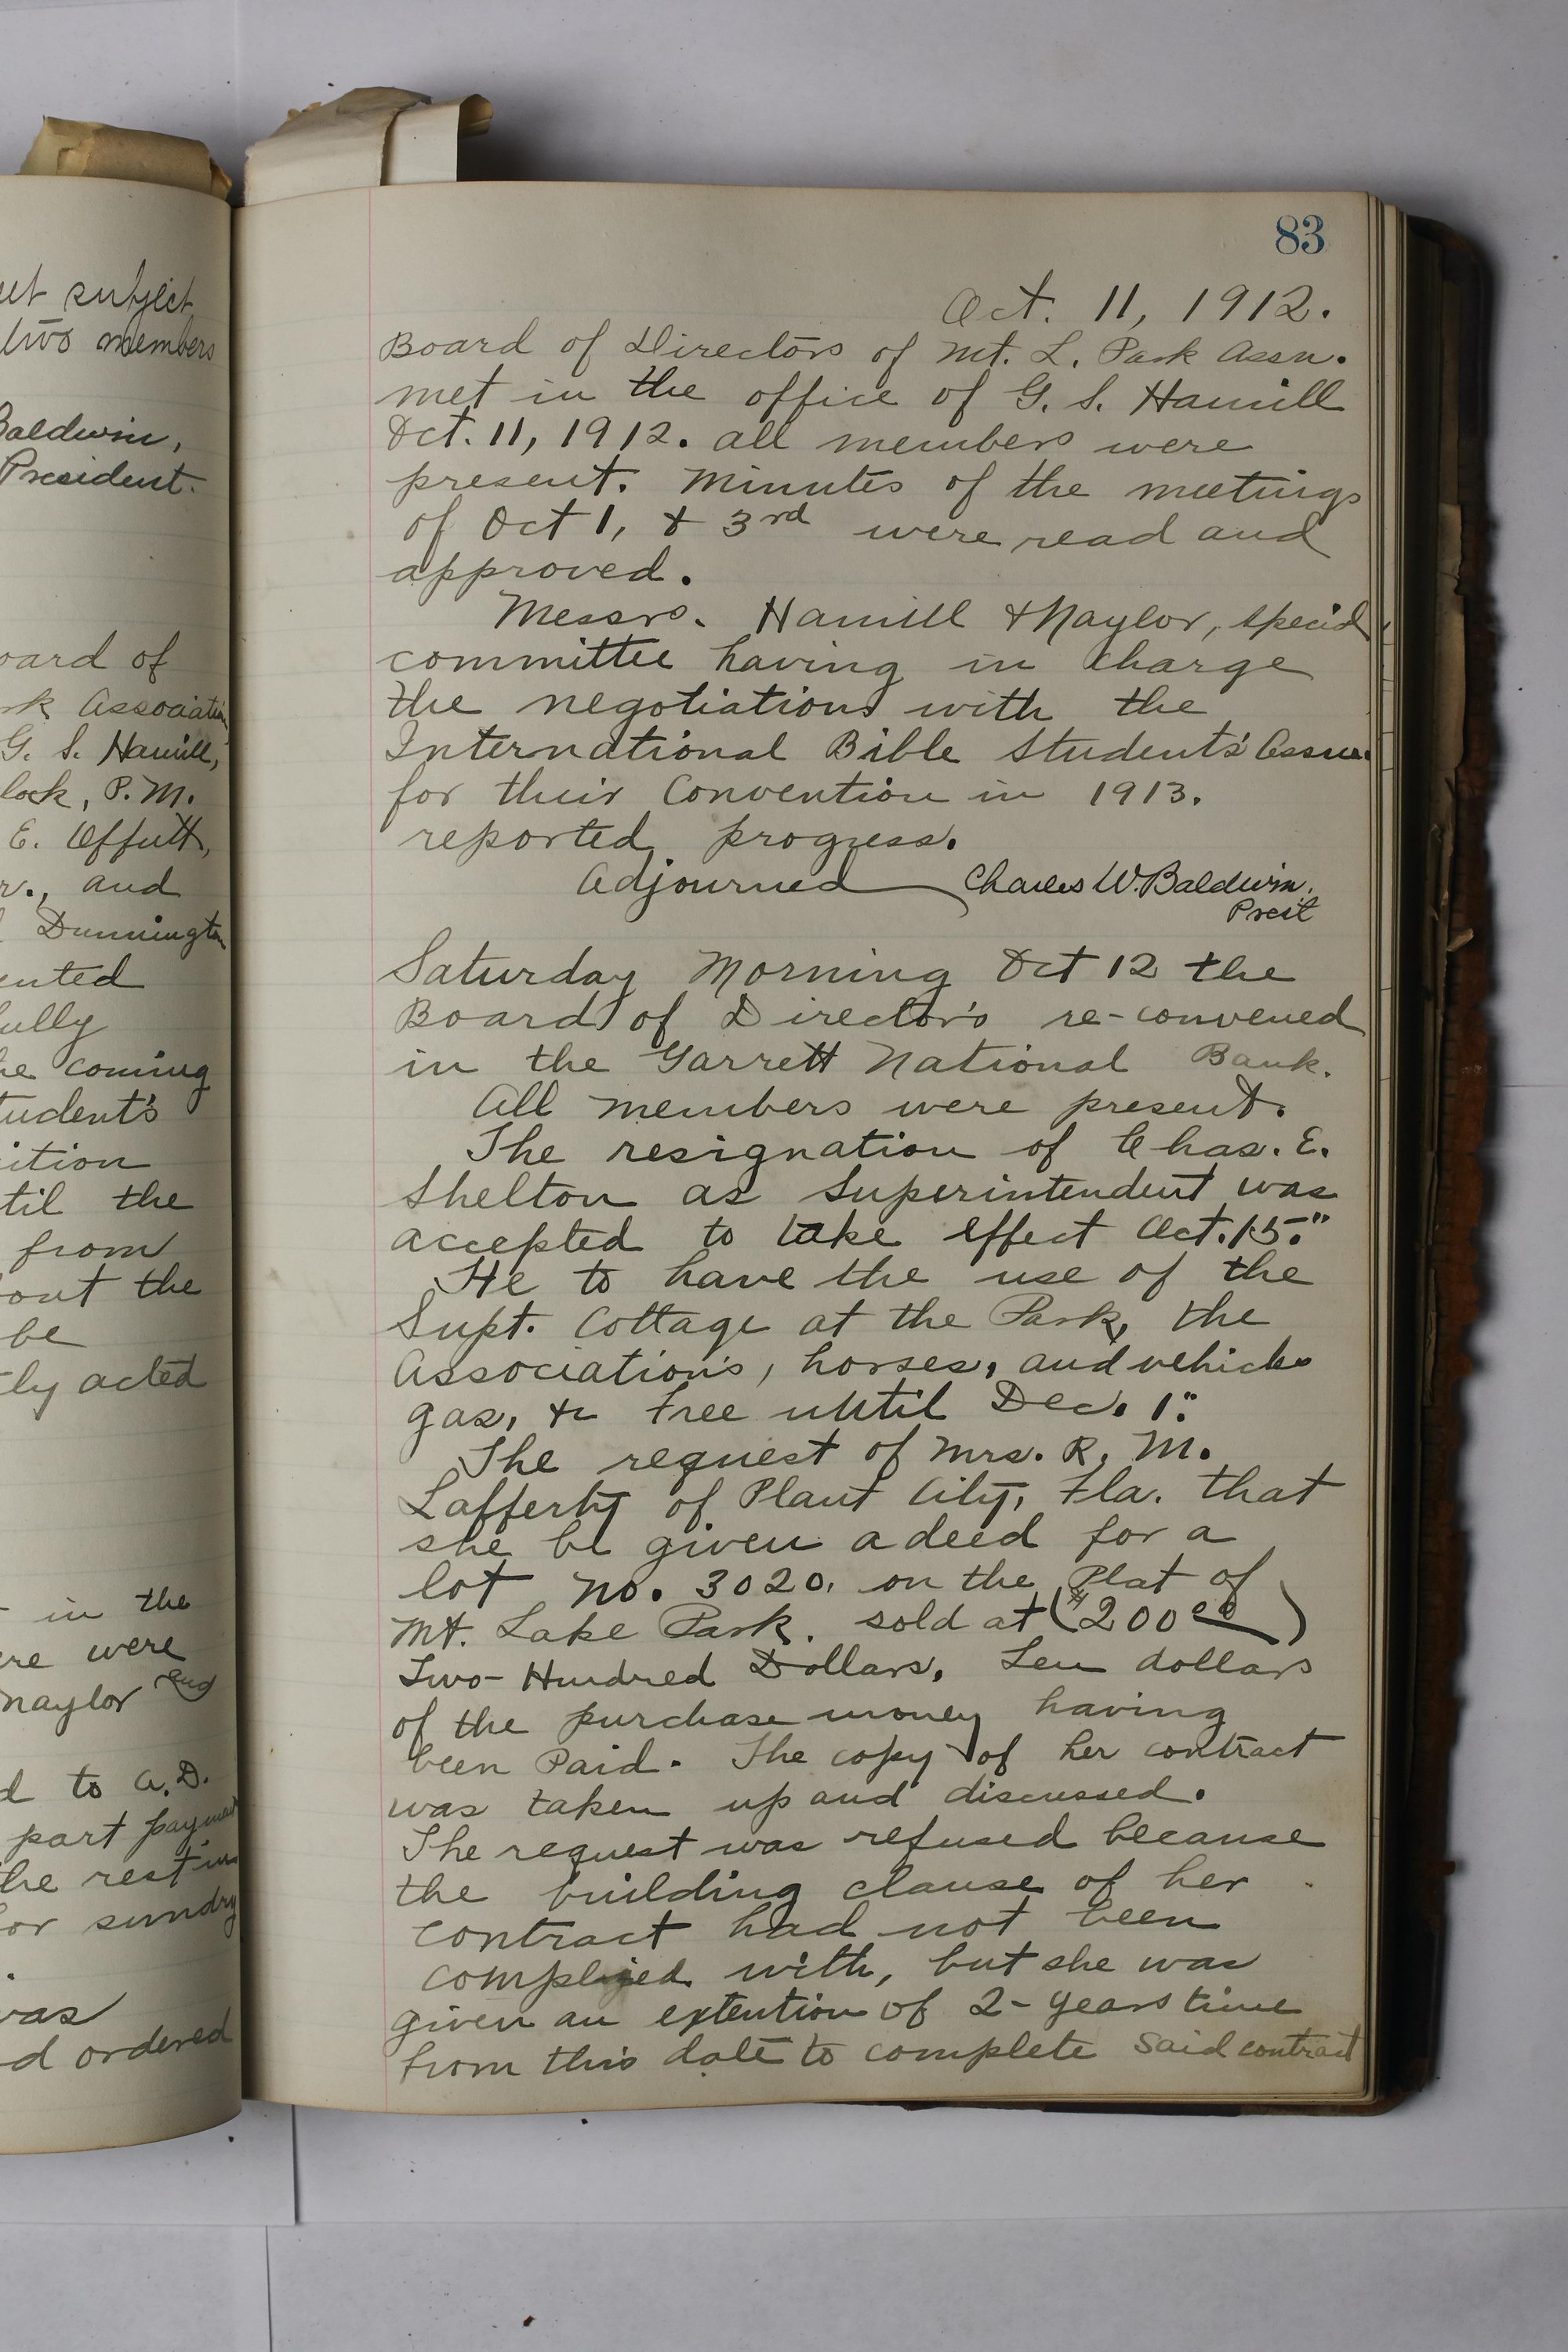 ut subject
two members
Baldwin,
President.
oard of
rk Association
G. S. Hamill,
lock, P. M.
E. Offutt,
r., and
Dunnington
ented
fully
he coming
tudent's
ition
til the
from
out the
be
tly acted
in the
ere were
Naylor and
d to A. D.
part payment
the rest in
for sundry
was
d ordered
83
Oct. 11, 1912.
Board of Directors of Mt. L. Park Assn.
met in the office of G. S. Hamill
Oct. 11, 1912. all members were
present. Minutes of the meetings
of Oct 1, & 3rd were read and
approved.
Messrs. Hamill & Naylor, special
committee having in charge
the negotiations with the
International Bible Students' Assn.
for their Convention in 1913.
reported progress.
Adjourned Charles W. Baldwin.
Prest
Saturday Morning Oct 12 the
Board of Director's re-convened
in the Garrett National Bank.
All members were present.
The resignation of Chas. E.
Shelton as Superintendent was
accepted to take effect Oct. 15."
He to have the use of the
Supt. Cottage at the Park, the
Association's, horses, and vehicles
gas, &c free until Dec. 1."
The request of Mrs. R. M.
Lafferty of Plant City, Fla. that
she be given a deed for a
lot No. 3020. on the Plat of
Mt. Lake Park. sold at ($200 00)
Two-Hundred Dollars, Ten dollars
of the purchase money having
been Paid. The copy of her contract
was taken up and discussed.
The request was refused because
the building clause of her
contract had not been
complied with, but she was
given an extention of 2-years time
from this date to complete said contract